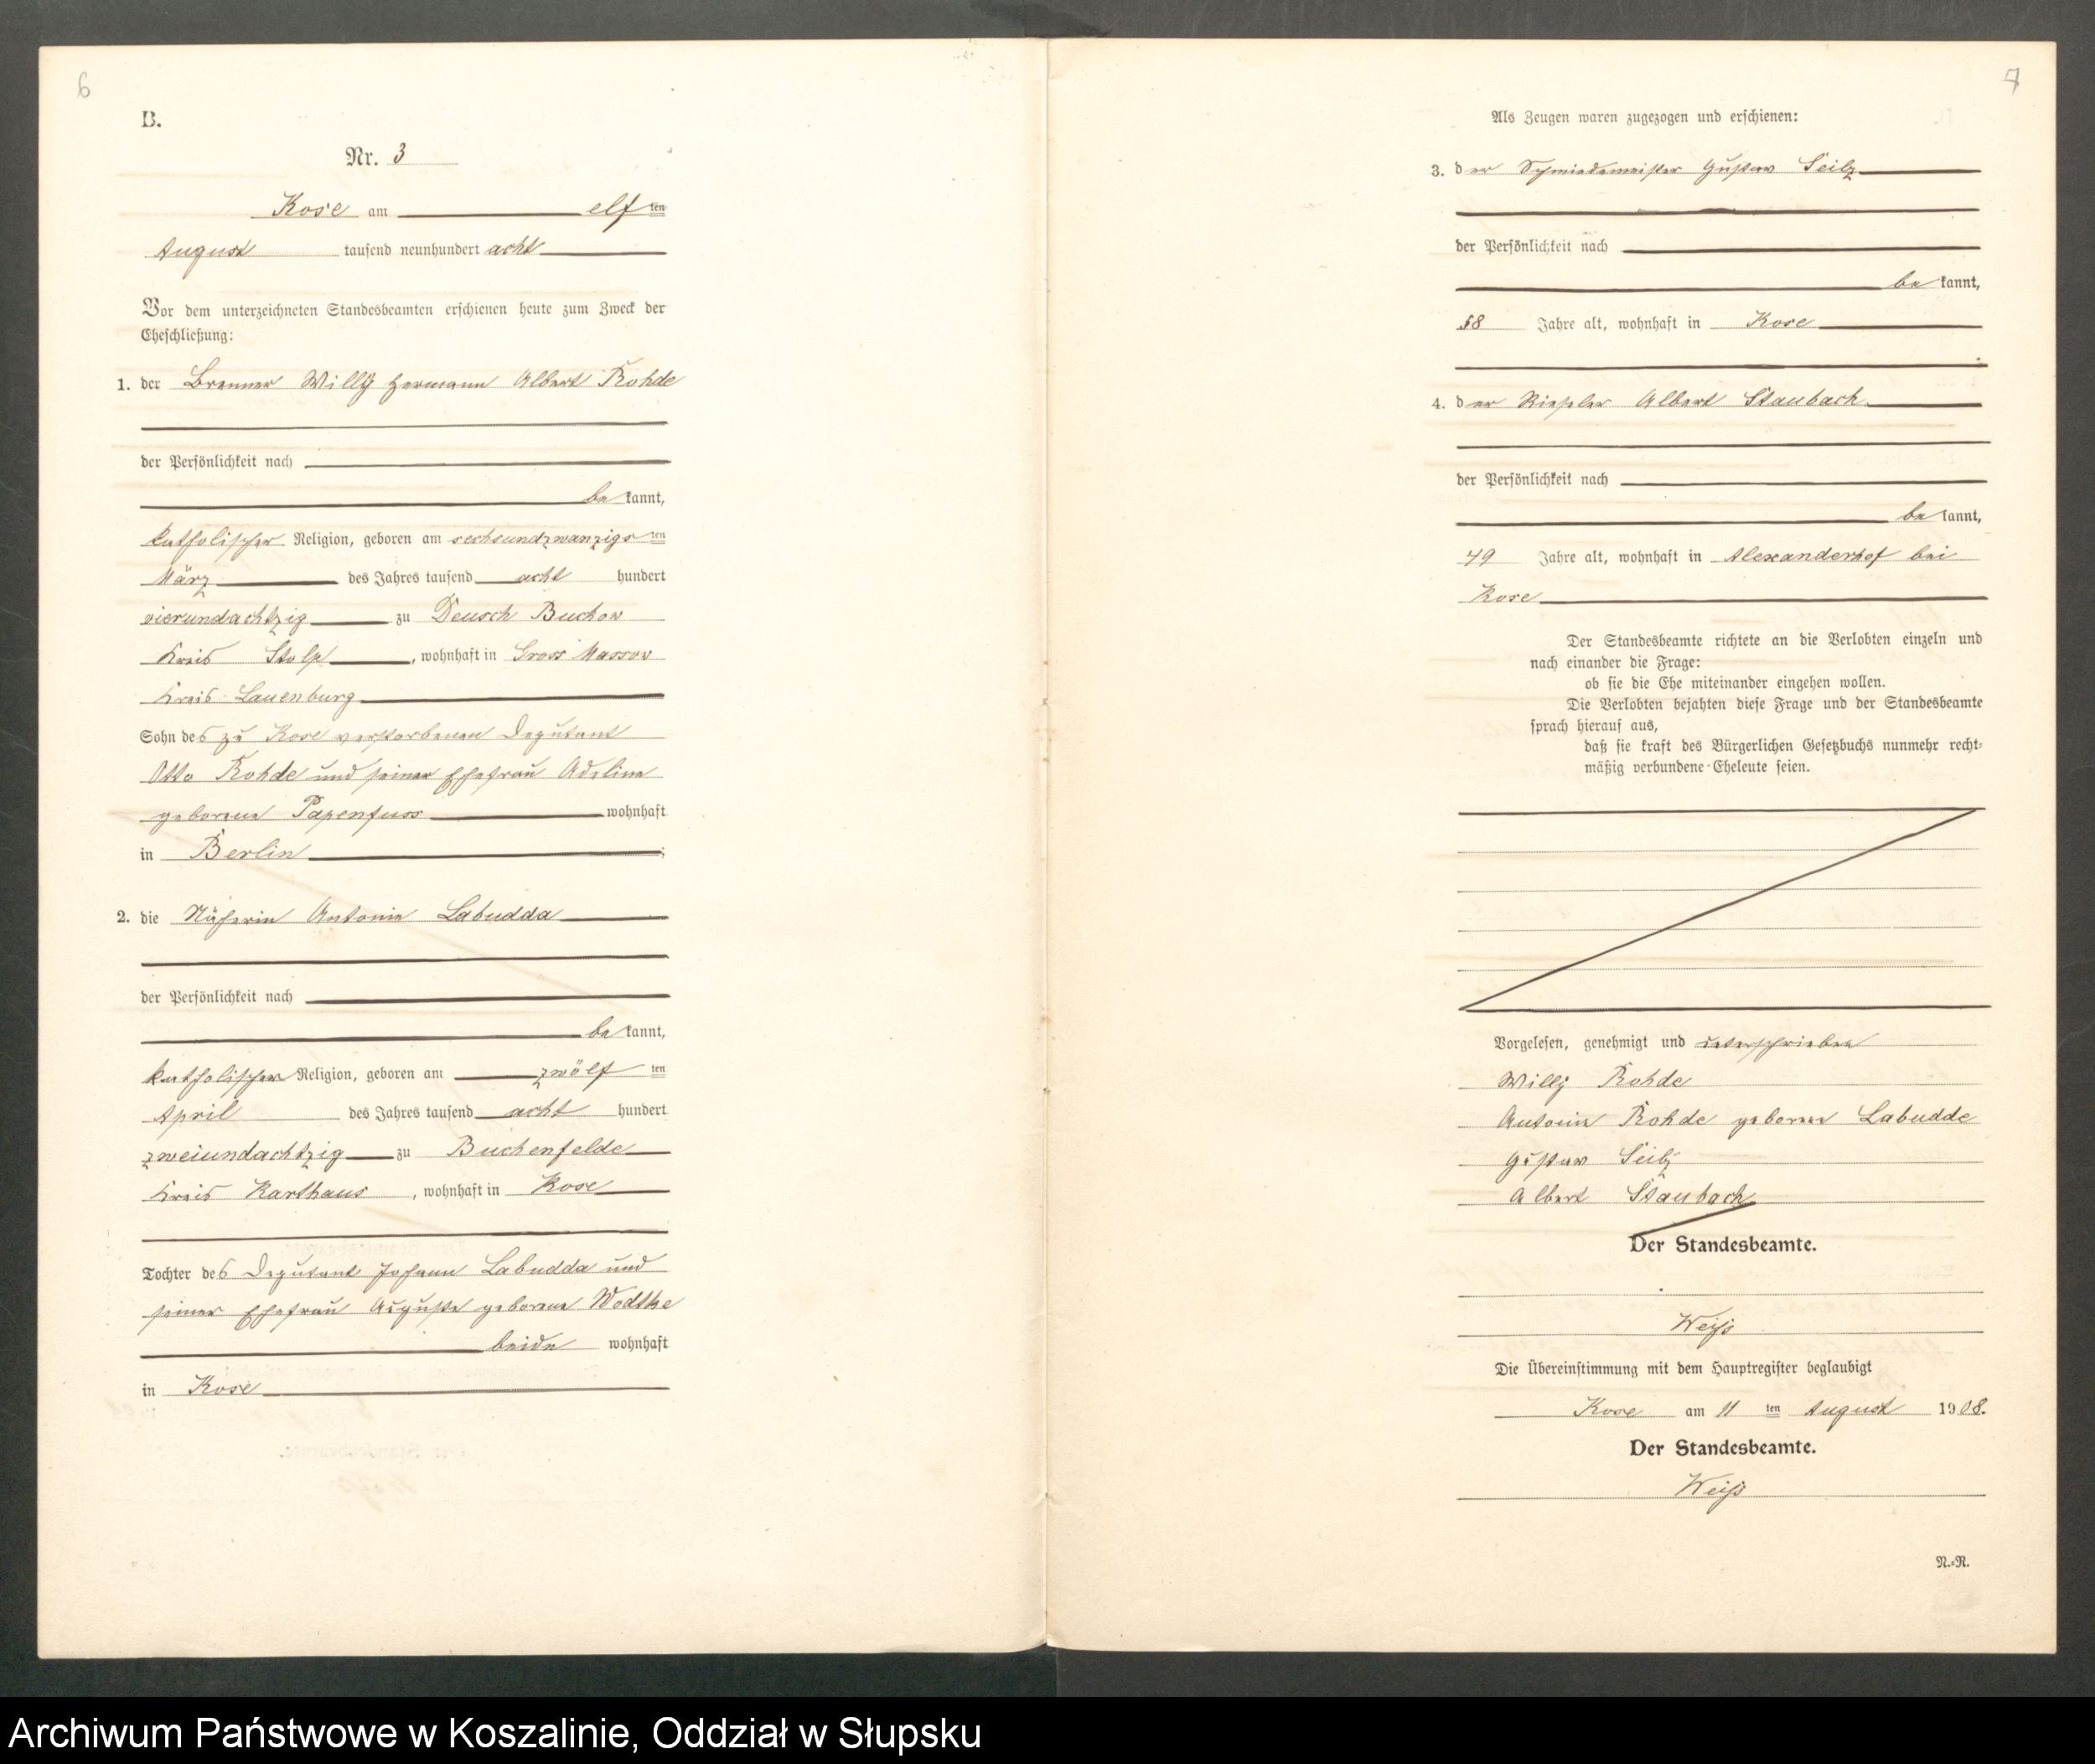 6
B.
Nr. 3
Kose am elf ten
August tausend neunhundert acht
Vor dem unterzeichneten Standesbeamten erschienen heute zum Zweck der
Eheschließung:
1. der Brenner Willy Hermann Albert Rohde
der Persönlichkeit nach
be kannt,
katholischer Religion, geboren am sechsundzwanzigs ten
März des Jahres tausend acht hundert
vierundachtzig zu Deusch Buckow
Kreis Stolp, wohnhaft in Gross Massow
Kreis Lauenburg
Sohn des zu Kose verstorbenen Deputant
Otto Rohde und seiner Ehefrau Adeline
geborene Papenfuss wohnhaft
in Berlin;
2. die Näherin Antonie Labudda
der Persönlichkeit nach
be kannt,
katholischer Religion, geboren am zwölf ten
April des Jahres tausend acht hundert
zweiundachtzig zu Buchenfelde
Kreis Karthaus, wohnhaft in Kose
Tochter des Deputant Johann Labudda und
seiner Ehefrau Auguste geborene Wodtke
beide wohnhaft
in Kose
7
Als Zeugen waren zugezogen und erschienen:
3. der Schmiedemeister Gustav Seilz
der Persönlichkeit nach
be kannt,
58 Jahre alt, wohnhaft in Kose
4. der Albert Staubach
der Persönlichkeit nach
be kannt,
49 Jahre alt, wohnhaft in Alexanderhof bei
Kose
Der Standesbeamte richtete an die Verlobten einzeln und
nach einander die Frage:
ob sie die Ehe miteinander eingehen wollen.
Die Verlobten bejahten diese Frage und der Standesbeamte
sprach hierauf aus,
daß sie kraft des Bürgerlichen Gesetzbuchs nunmehr recht-
mäßig verbundene Eheleute seien.
Vorgelesen, genehmigt und unterschrieben
Willy Rohde
Antonie Rohde geborene Labudde
Gustav Seilz
Albert Staubach
Der Standesbeamte.
Weiß
Die Übereinstimmung mit dem Hauptregister beglaubigt
Kose am 11 ten August 1908.
Der Standesbeamte.
Weiß
N.-R.
Archiwum Państwowe w Koszalinie, Oddział w Słupsku